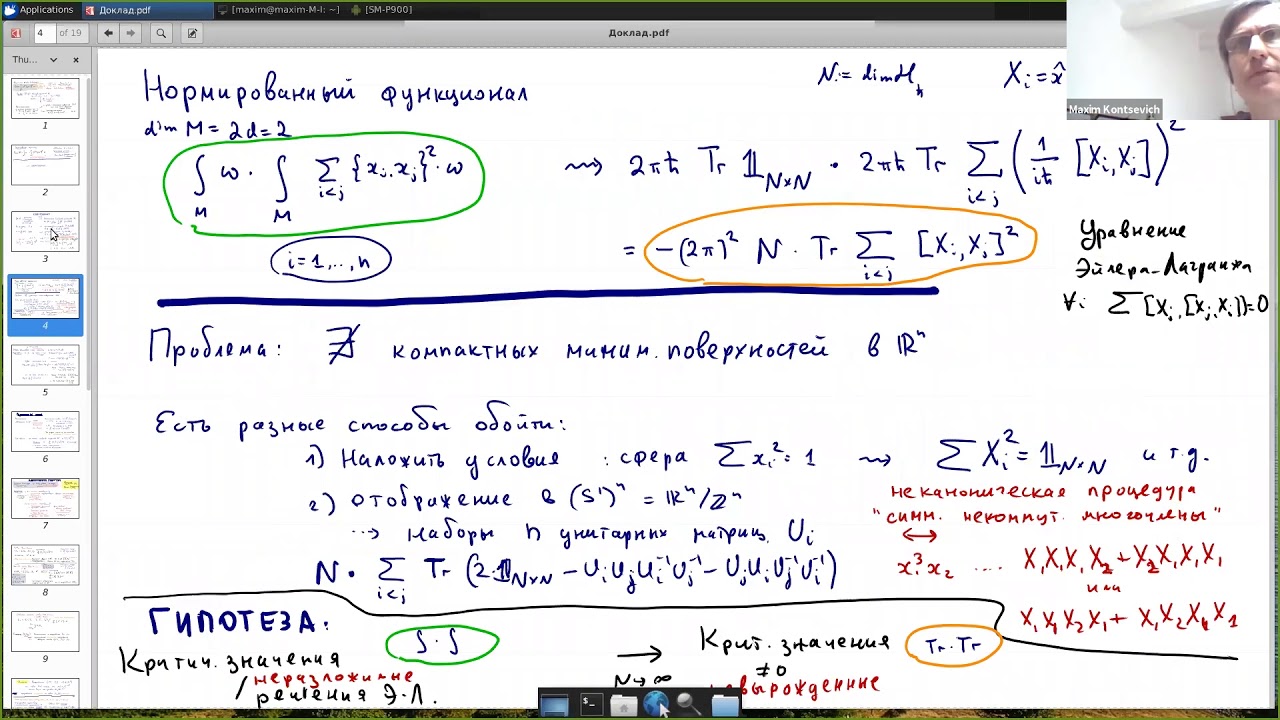 Applications
Доклад.pdf
[maxim@maxim-M-I: ~]
[SM-P900]
4 of 19
Доклад.pdf
Thu...
1
2
3
4
5
6
7
8
9
Maxim Kontsevich
Нормированный функционал
N := dim ℋ_ħ
X_i = x̂
dim M = 2d = 2
∫_M ω · ∫_M Σ_{i<j} {x_i, x_j}² · ω ⇝ 2πħ Tr 𝟙_{N×N} · 2πħ Tr Σ_{i<j} (1/(iħ) [X_i, X_j])²
i = 1, .., n
= -(2π)² N · Tr Σ_{i<j} [X_i, X_j]²
Уравнение
Эйлера-Лагранжа
∀i Σ [X_j, [X_j, X_i]] = 0
Проблема: ∄ компактных миним. поверхностей в ℝⁿ
Есть разные способы обойти:
1) Наложить условия : сфера Σ x_i² = 1 ⇝ Σ X_i² = 𝟙_{N×N} и т.д.
2) отображение в (S¹)ⁿ = ℝⁿ/ℤⁿ
⇝ наборы n унитарных матриц U_i
N · Σ_{i<j} Tr (2·𝟙_{N×N} - U_i U_j U_i⁻¹ U_j⁻¹ - U_j U_i U_j⁻¹ U_i⁻¹)
неканоническая процедура
"симм. некоммут. многочлены"
↔
x₁³ x₂ .... X₁X₁X₁X₂ + X₂X₁X₁X₁
или
X₁X₁X₂X₁ + X₁X₂X₁X₁
ГИПОТЕЗА:
∫·∫
Критич. значения
неразложимые
/ решения Э.Л.
→
N→∞
Крит. значения
Tr·Tr
≠0
невырожденные